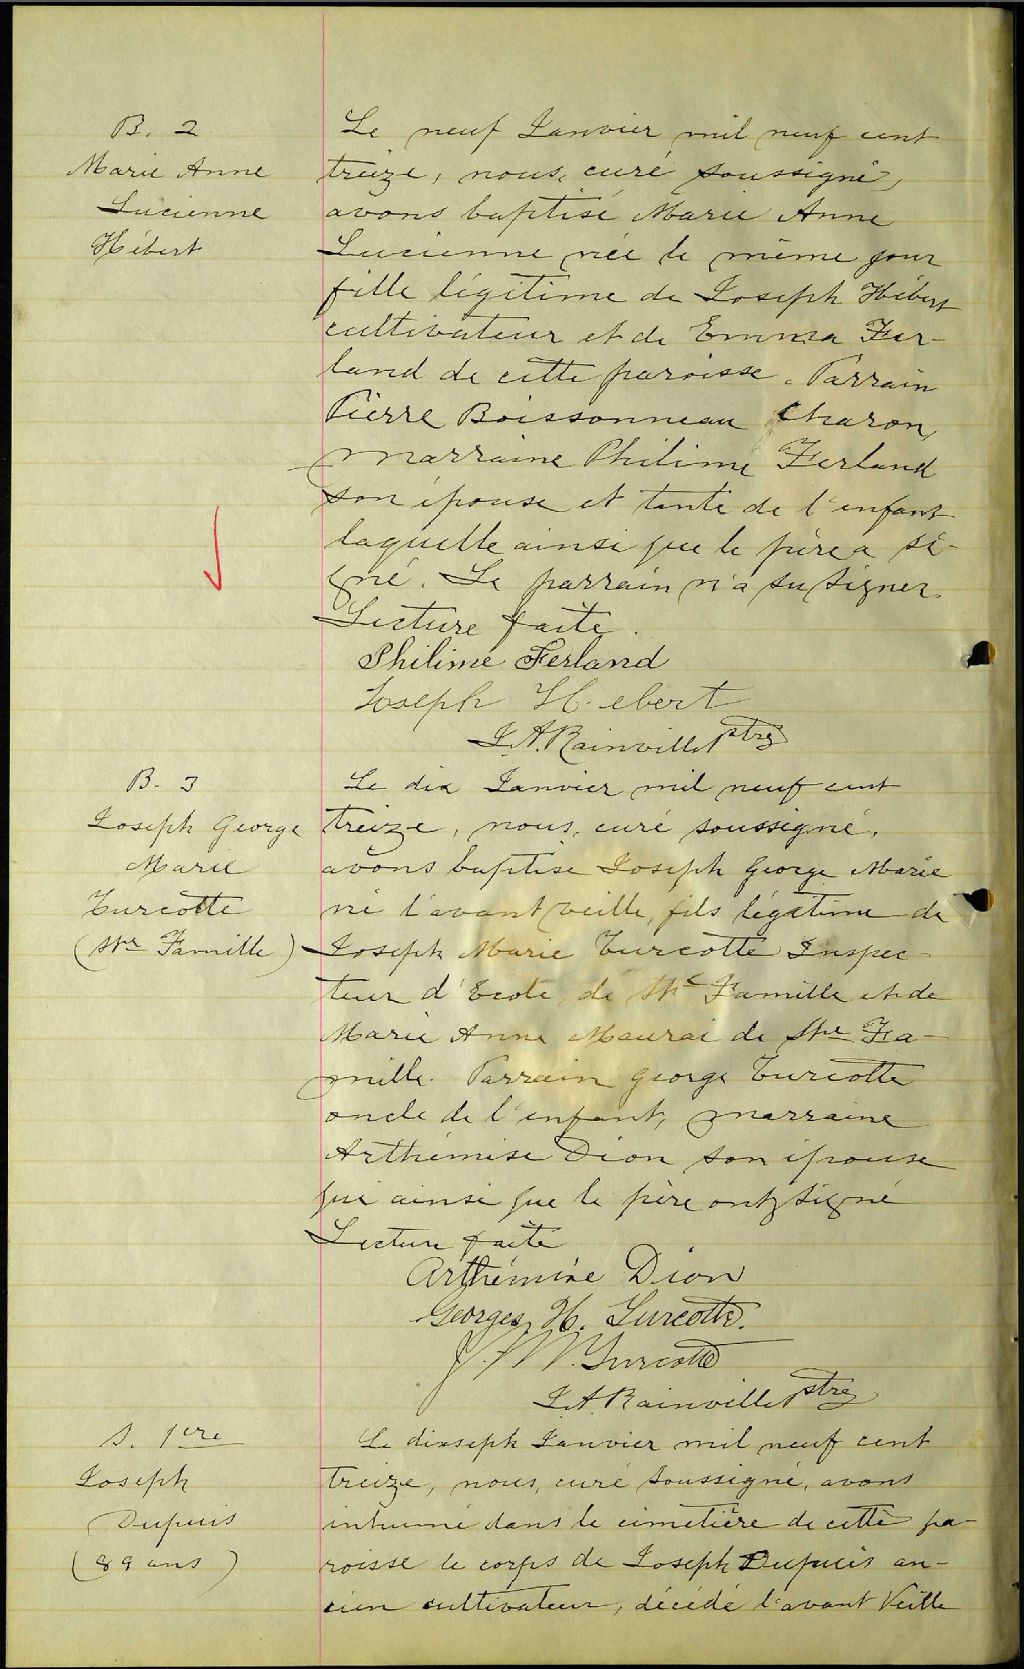 B. 2
Marie Anne
Lucienne
Hébert
Le neuf Janvier mil neuf cent
treize, nous, curé soussigné,
avons baptisé Marie Anne
Lucienne née le même jour
fille légitime de Joseph Hébert
cultivateur et de Emma Fer-
land de cette paroisse. Parrain
Pierre Boissonneau Charon,
marraine Philime Ferland
son épouse et tante de l'enfant
laquelle ainsi que le père a si-
gné. Le parrain n'a su signer.
Lecture faite.
Philime Ferland
Joseph H. ebert
J.A. Rainville ptre
B. 3
Joseph George
Marie
Turcotte
(Ste Famille)
Le dix Janvier mil neuf cent
treize, nous, curé soussigné,
avons baptise Joseph George Marie
né l'avant veille, fils légitime de
Joseph Marie Turcotte Inspec-
teur d'Ecole de Ste Famille et de
Marie Anne Maurai de Ste Fa-
mille. Parrain George Turcotte
oncle de l'enfant, marraine
Arthémise Dion son épouse
qui ainsi que le père ont signé
Lecture faite
Arthémise Dion
Georges H. Turcotte.
J. M. Turcotte
J.A. Rainville ptre
S. 1ere
Joseph
Dupuis
(89 ans)
Le dixseph Janvier mil neuf cent
treize, nous, curé soussigné, avons
inhumé dans le cimetière de cette pa-
roisse le corps de Joseph Dupuis an-
cien cultivateur, décédé l'avant Veille